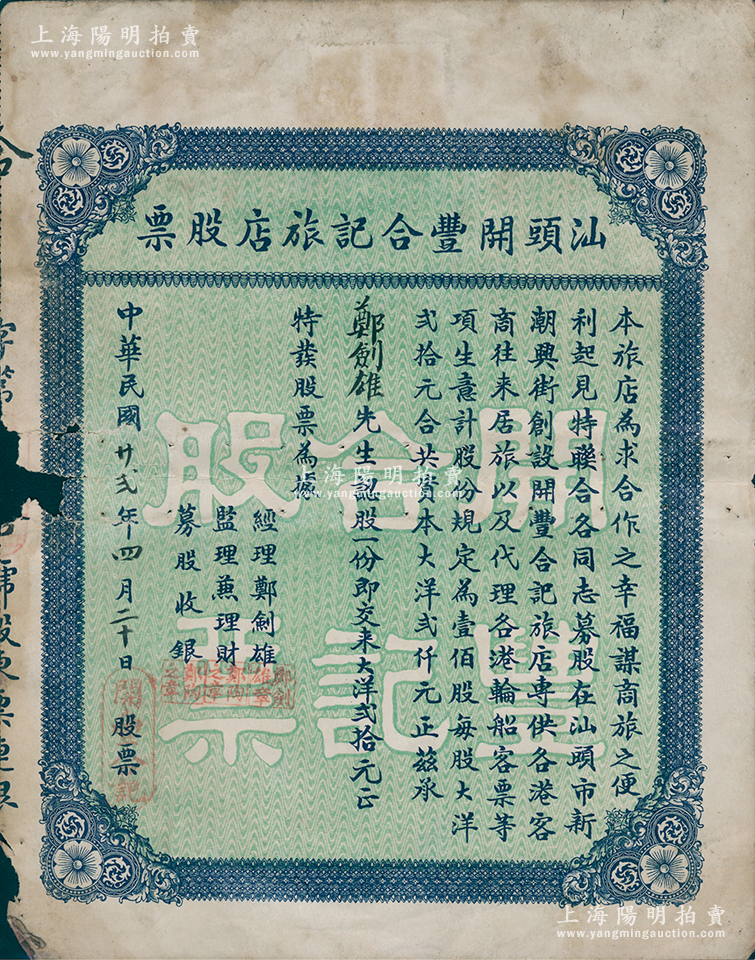 上海陽明拍賣
www.yangmingauction.com
汕頭開豐合記旅店股票
本旅店為求合作之幸福謀商旅之便
利起見特聯合各同志募股在汕頭市新
潮興街創設開豐合記旅店專供各港客
商往來居旅以及代理各港輪船客票等
項生意計股份規定為壹佰股每股大洋
弍拾元合共資本大洋弍仟元正茲承
鄭劍雄先生認股一份即交來大洋弍拾元正
特發股票為據
經理鄭劍雄
監理兼理財
募股收銀
中華民國廿弍年四月二十日
股票
開合股
豐記票
合
字第
號股東票連根
上海陽明拍賣
www.yangmingauction.com
上海陽明拍賣
www.yangmingauction.com